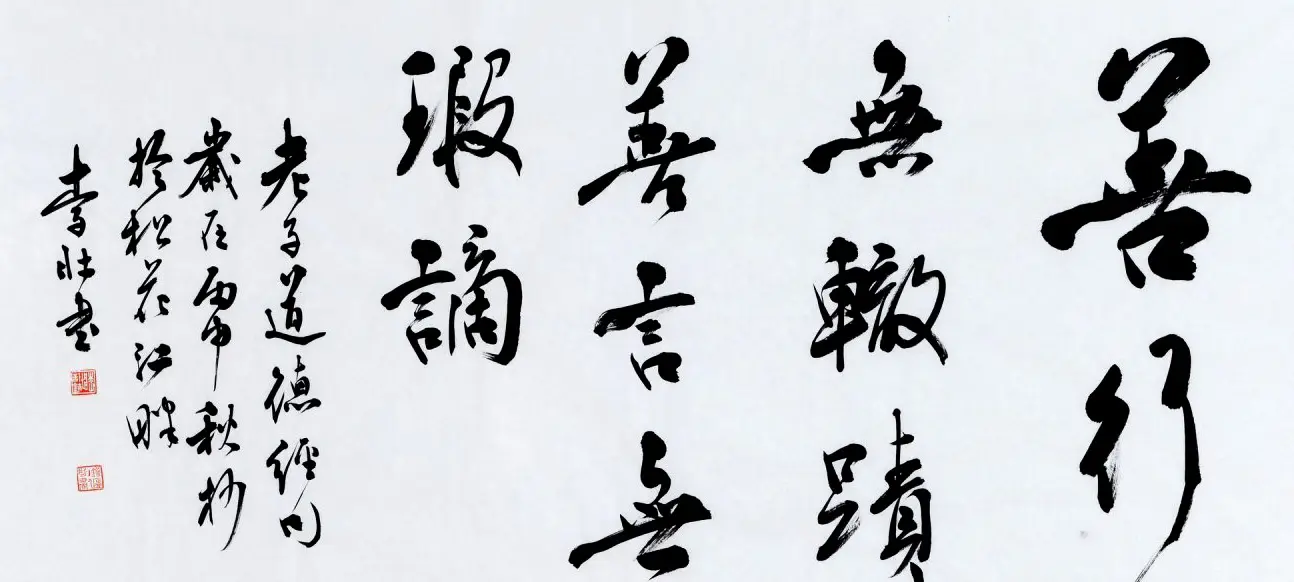 善行
無轍蹟
善言無
瑕謫
老子道德經句
歲在丙申秋抄
於松花江畔
李壯書